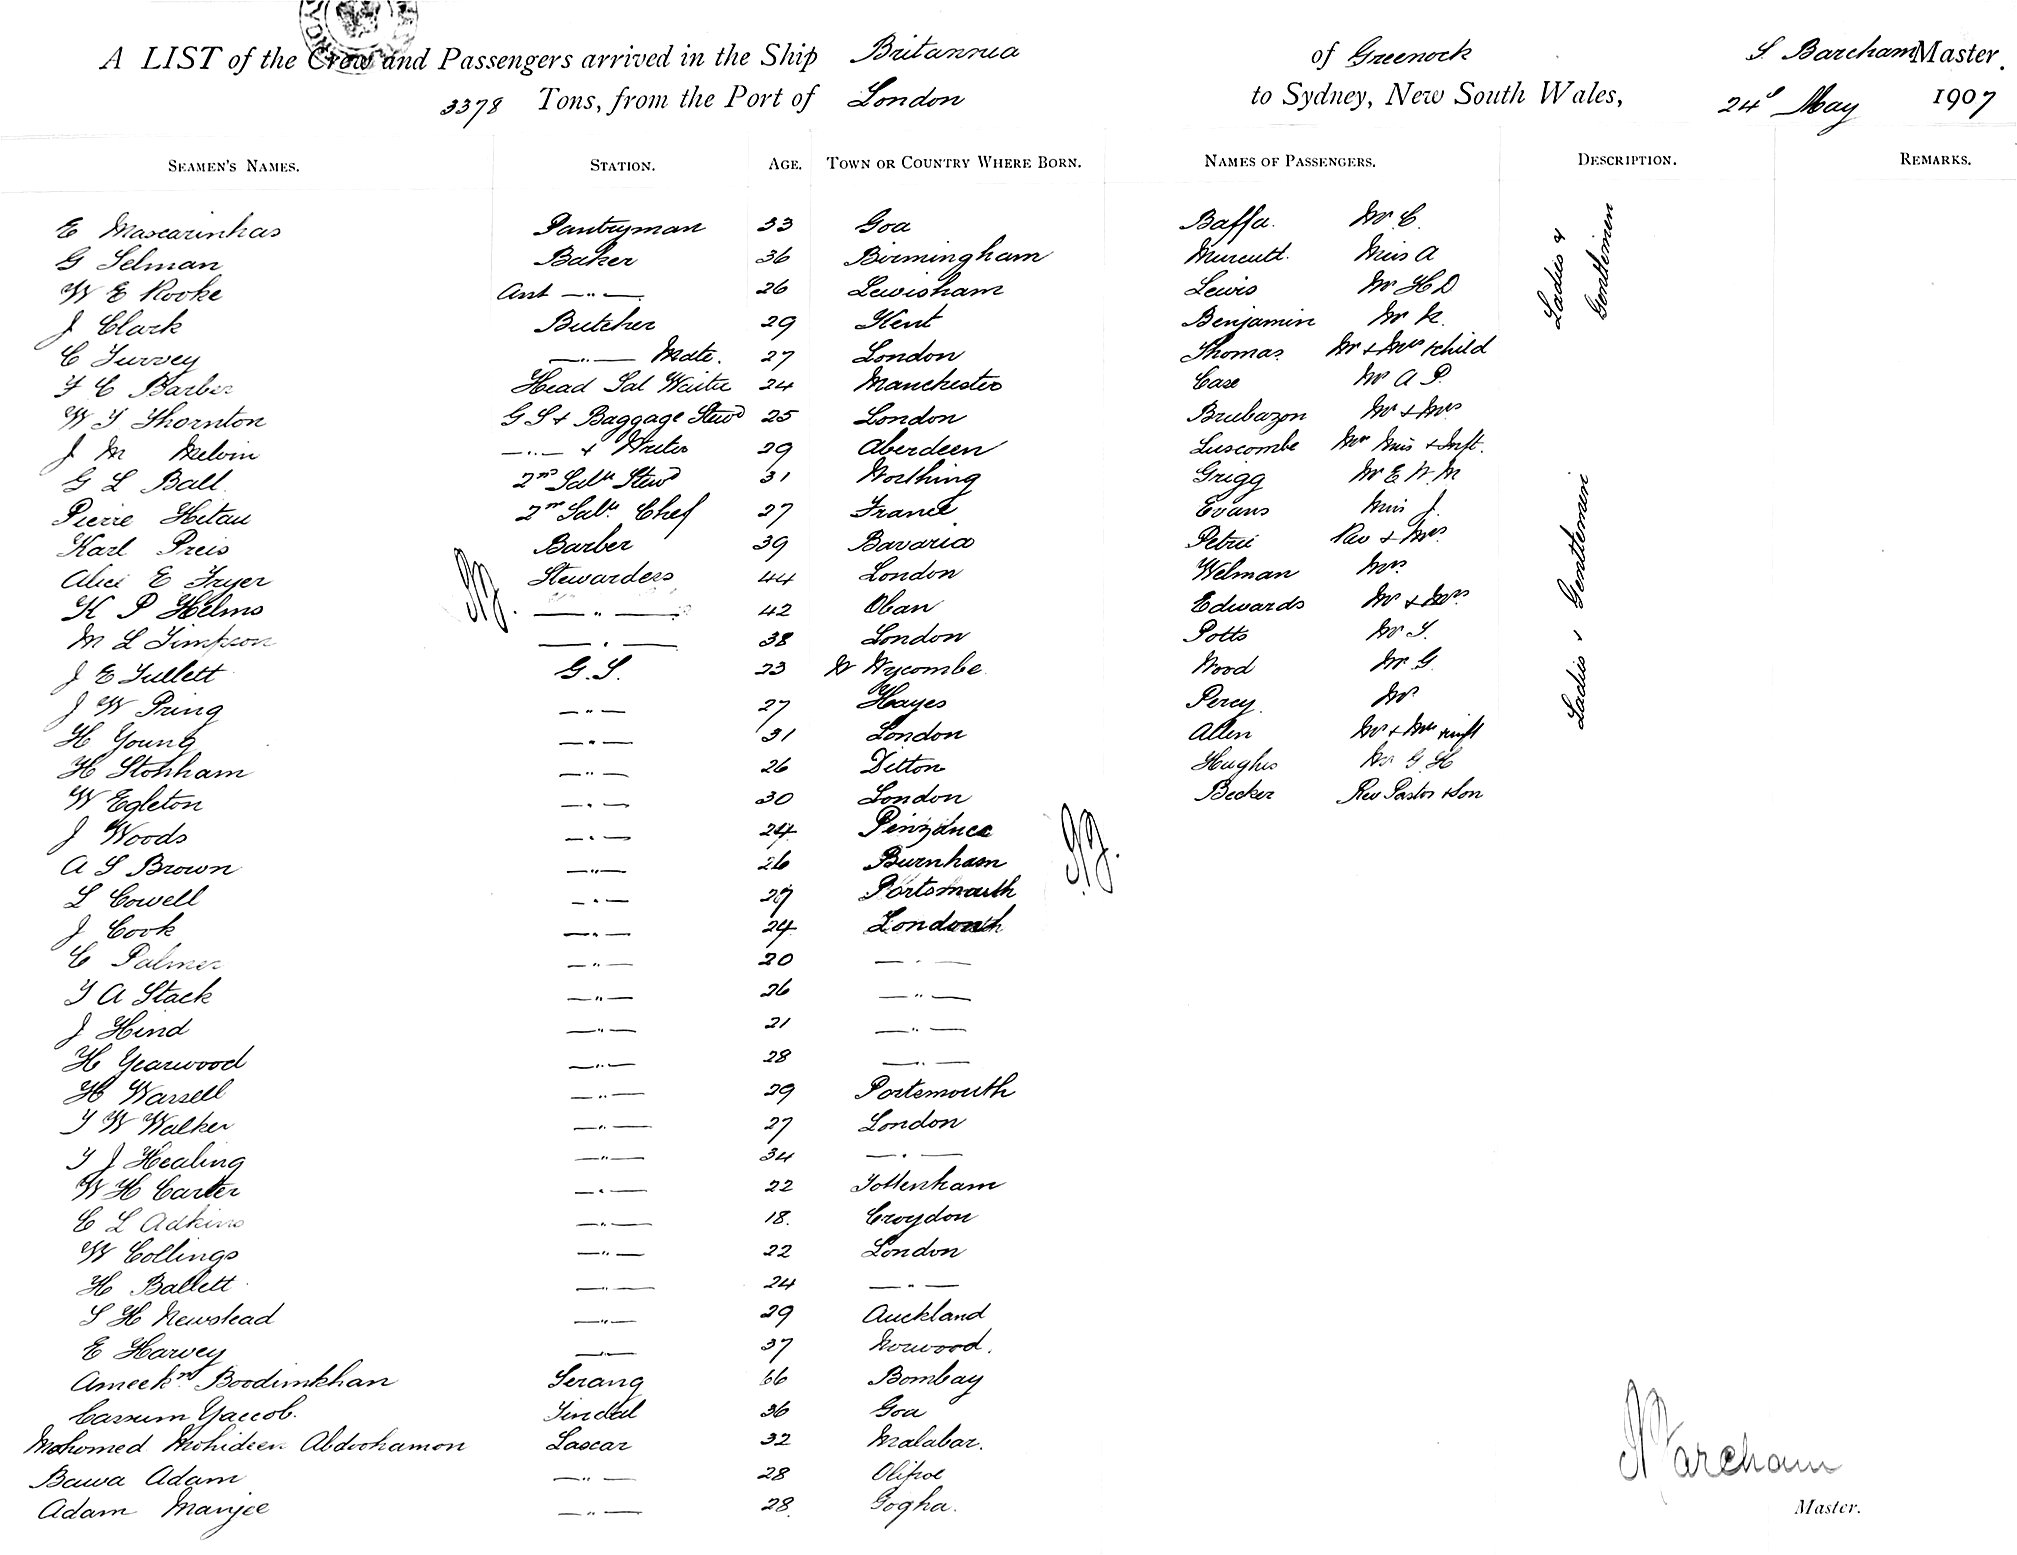 A LIST of the Crew and Passengers arrived in the Ship Britannia of Greenock S. Barcham Master.
3378 Tons, from the Port of London to Sydney, New South Wales, 24 May 1907
SEAMEN'S NAMES. STATION. AGE. TOWN OR COUNTRY WHERE BORN. NAMES OF PASSENGERS. DESCRIPTION. REMARKS.
E Mascarinhas Pantryman 33 Goa Baffa. Mr C. Ladies & Gentlemen
G Selman Baker 36 Birmingham Miss A
W E Rooke Asst —"— 26 Lewisham Lewis Mr H D
J Clark Butcher 29 Kent Benjamin Mr K.
C Turvey —"— Mate. 27 London Thomas Mr & Mrs & child
F C Barber Head Sal Waiter 24 Manchester Case Mr A P.
W T Thornton G S & Baggage Stewd 25 London Brabazon Mr & Mrs
J M Melvin —"— & Writer 29 Aberdeen Luscombe Mrs Miss & Inft.
G L Ball. 2nd Saln Stewd 31 Worthing Grigg Mr E W M Ladies & Gentlemen
Pierre Hitau 2nd Saln Chef 27 France Evans Miss J.
Karl Preis Barber 39 Bavaria Petrie Rev & Mrs
Alice E Fryer Stewardess 44 London Welman Mrs
K P Helms —"— 42 Oban Edwards Mr & Mrs
M L Timpson —"— 38 London Potts Mr S.
J E Tullett G. S. 23 W Wycombe Wood Mr G.
J W Pring —"— 27 Hayes Percy. Mr
H Young —"— 31 London Allen Mr & Mrs & inft
H Stonham —"— 26 Ditton Hughes Mr G H
W Egleton —"— 30 London Becker Rev Pastor & Son
J Woods —"— 24 Penzance
A S Brown —"— 26 Burnham
L Cowell —"— 27 Portsmouth
J Cook —"— 24 London
C Palmer —"— 20 —"—
T A Stack —"— 26 —"—
J Hind —"— 21 —"—
H Yearwood —"— 28 —"—
H Warsell —"— 29 Portsmouth
T W Walker —"— 27 London
T J Healing —"— 34 —"—
W H Carter —"— 22 Tottenham
C L Adkins —"— 18. Croydon
W Collings —"— 22 London
H Ballett —"— 24 —"—
S H Newstead —"— 29 Auckland
E Harvey —"— 37 Norwood.
Boodinkhan Serang 66 Bombay
Cassum Yaccob. Tindal 36 Goa
Mahomed Mohideen Abdoohamon Lascar 32 Malabar.
Bawa Adam —"— 28
Adam Manjee —"— 28. Gogha.
Barcham
Master.